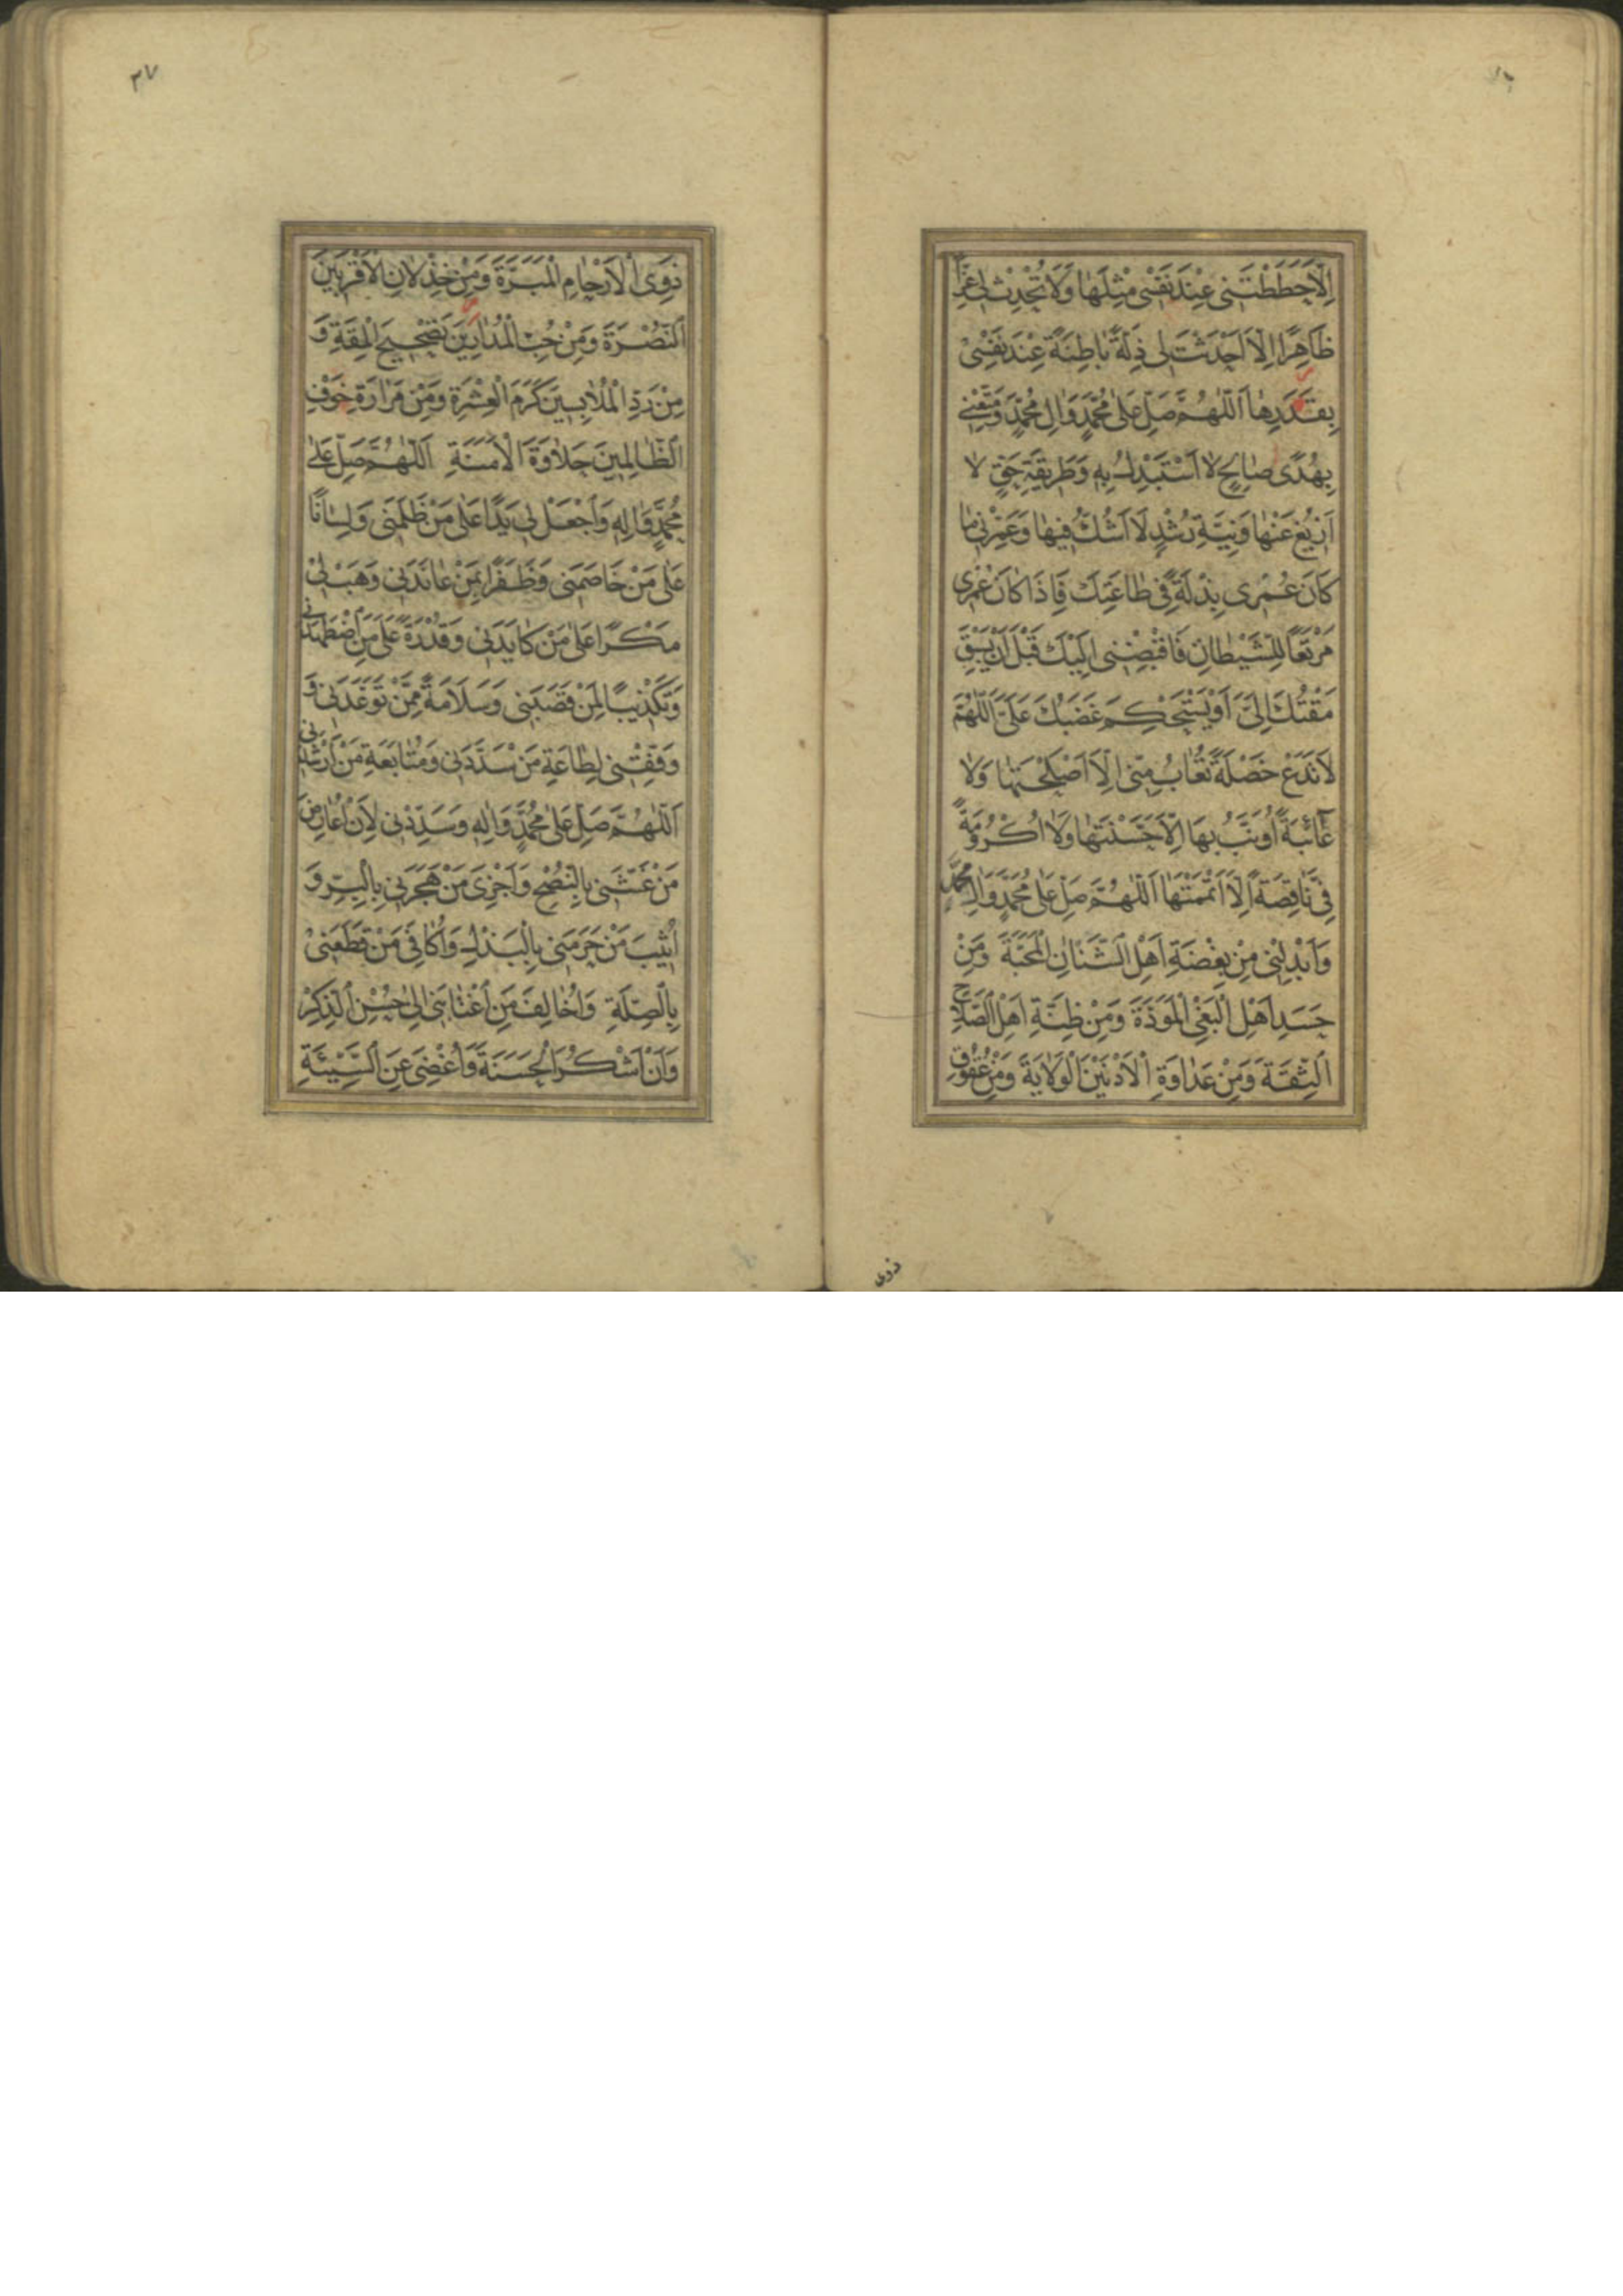 اِلَّا حَطَطْتَنِی عِنْدَ نَفْسِی مِثْلَهَا وَلَا تُحْدِثْ لِی عِزًّا
ظَاهِرًا اِلَّا اَحْدَثْتَ لِی ذِلَّةً بَاطِنَةً عِنْدَ نَفْسِی
بِقَدَرِهَا اَللّٰهُمَّ صَلِّ عَلٰی مُحَمَّدٍ وَاٰلِ مُحَمَّدٍ وَمَتِّعْنِی
بِهُدًی صَالِحٍ لَا اَسْتَبْدِلُ بِهٖ وَطَرِیقَةِ حَقٍّ لَا
اَزِیغُ عَنْهَا وَنِیَّةِ رُشْدٍ لَا اَشُكُّ فِیهَا وَعَمِّرْنِی مَا
كَانَ عُمْرِی بِذْلَةً فِی طَاعَتِكَ فَاِذَا كَانَ عُمْرِی
مَرْتَعًا لِلشَّیْطَانِ فَاقْبِضْنِی اِلَیْكَ قَبْلَ اَنْ یَسْبِقَ
مَقْتُكَ اِلَیَّ اَوْ یَسْتَحْكِمَ غَضَبُكَ عَلَیَّ اَللّٰهُمَّ
لَا تَدَعْ خَصْلَةً تُعَابُ مِنِّی اِلَّا اَصْلَحْتَهَا وَلَا
عَائِبَةً اُوَنَّبُ بِهَا اِلَّا حَسَّنْتَهَا وَلَا اُكْرُومَةً
فِیَّ نَاقِصَةً اِلَّا اَتْمَمْتَهَا اَللّٰهُمَّ صَلِّ عَلٰی مُحَمَّدٍ وَاٰلِ مُحَمَّدٍ
وَاَبْدِلْنِی مِنْ بِغْضَةِ اَهْلِ الشَّنَاٰنِ الْمَحَبَّةَ وَمِنْ
حَسَدِ اَهْلِ الْبَغْیِ الْمَوَدَّةَ وَمِنْ ظِنَّةِ اَهْلِ الصَّلَاحِ
الثِّقَةَ وَمِنْ عَدَاوَةِ الْاَدْنَیْنَ الْوَلَایَةَ وَمِنْ عُقُوقِ
ذوی
۳۷
ذَوِی الْاَرْحَامِ الْمَبَرَّةَ وَمِنْ خِذْلَانِ الْاَقْرَبِینَ
النُّصْرَةَ وَمِنْ حُبِّ الْمُدَارِینَ تَصْحِیحَ الْمِقَةِ وَ
مِنْ رَدِّ الْمُلَابِسِینَ كَرَمَ الْعِشْرَةِ وَمِنْ مَرَارَةِ خَوْفِ
الظَّالِمِینَ حَلَاوَةَ الْاَمَنَةِ اَللّٰهُمَّ صَلِّ عَلٰی
مُحَمَّدٍ وَاٰلِهٖ وَاجْعَلْ لِی یَدًا عَلٰی مَنْ ظَلَمَنِی وَلِسَانًا
عَلٰی مَنْ خَاصَمَنِی وَظَفَرًا بِمَنْ عَانَدَنِی وَهَبْ لِی
مَكْرًا عَلٰی مَنْ كَایَدَنِی وَقُدْرَةً عَلٰی مَنِ اضْطَهَدَنِی
وَتَكْذِیبًا لِمَنْ قَصَبَنِی وَسَلَامَةً مِمَّنْ تَوَعَّدَنِی وَ
وَفِّقْنِی لِطَاعَةِ مَنْ سَدَّدَنِی وَمُتَابَعَةِ مَنْ اَرْشَدَنِی
اَللّٰهُمَّ صَلِّ عَلٰی مُحَمَّدٍ وَاٰلِهٖ وَسَدِّدْنِی لِاَنْ اُعَارِضَ
مَنْ غَشَّنِی بِالنُّصْحِ وَاَجْزِیَ مَنْ هَجَرَنِی بِالْبِرِّ وَ
اُثِیبَ مَنْ حَرَمَنِی بِالْبَذْلِ وَاُكَافِیَ مَنْ قَطَعَنِی
بِالصِّلَةِ وَاُخَالِفَ مَنِ اغْتَابَنِی اِلٰی حُسْنِ الذِّكْرِ
وَاَنْ اَشْكُرَ الْحَسَنَةَ وَاُغْضِیَ عَنِ السَّیِّئَةِ